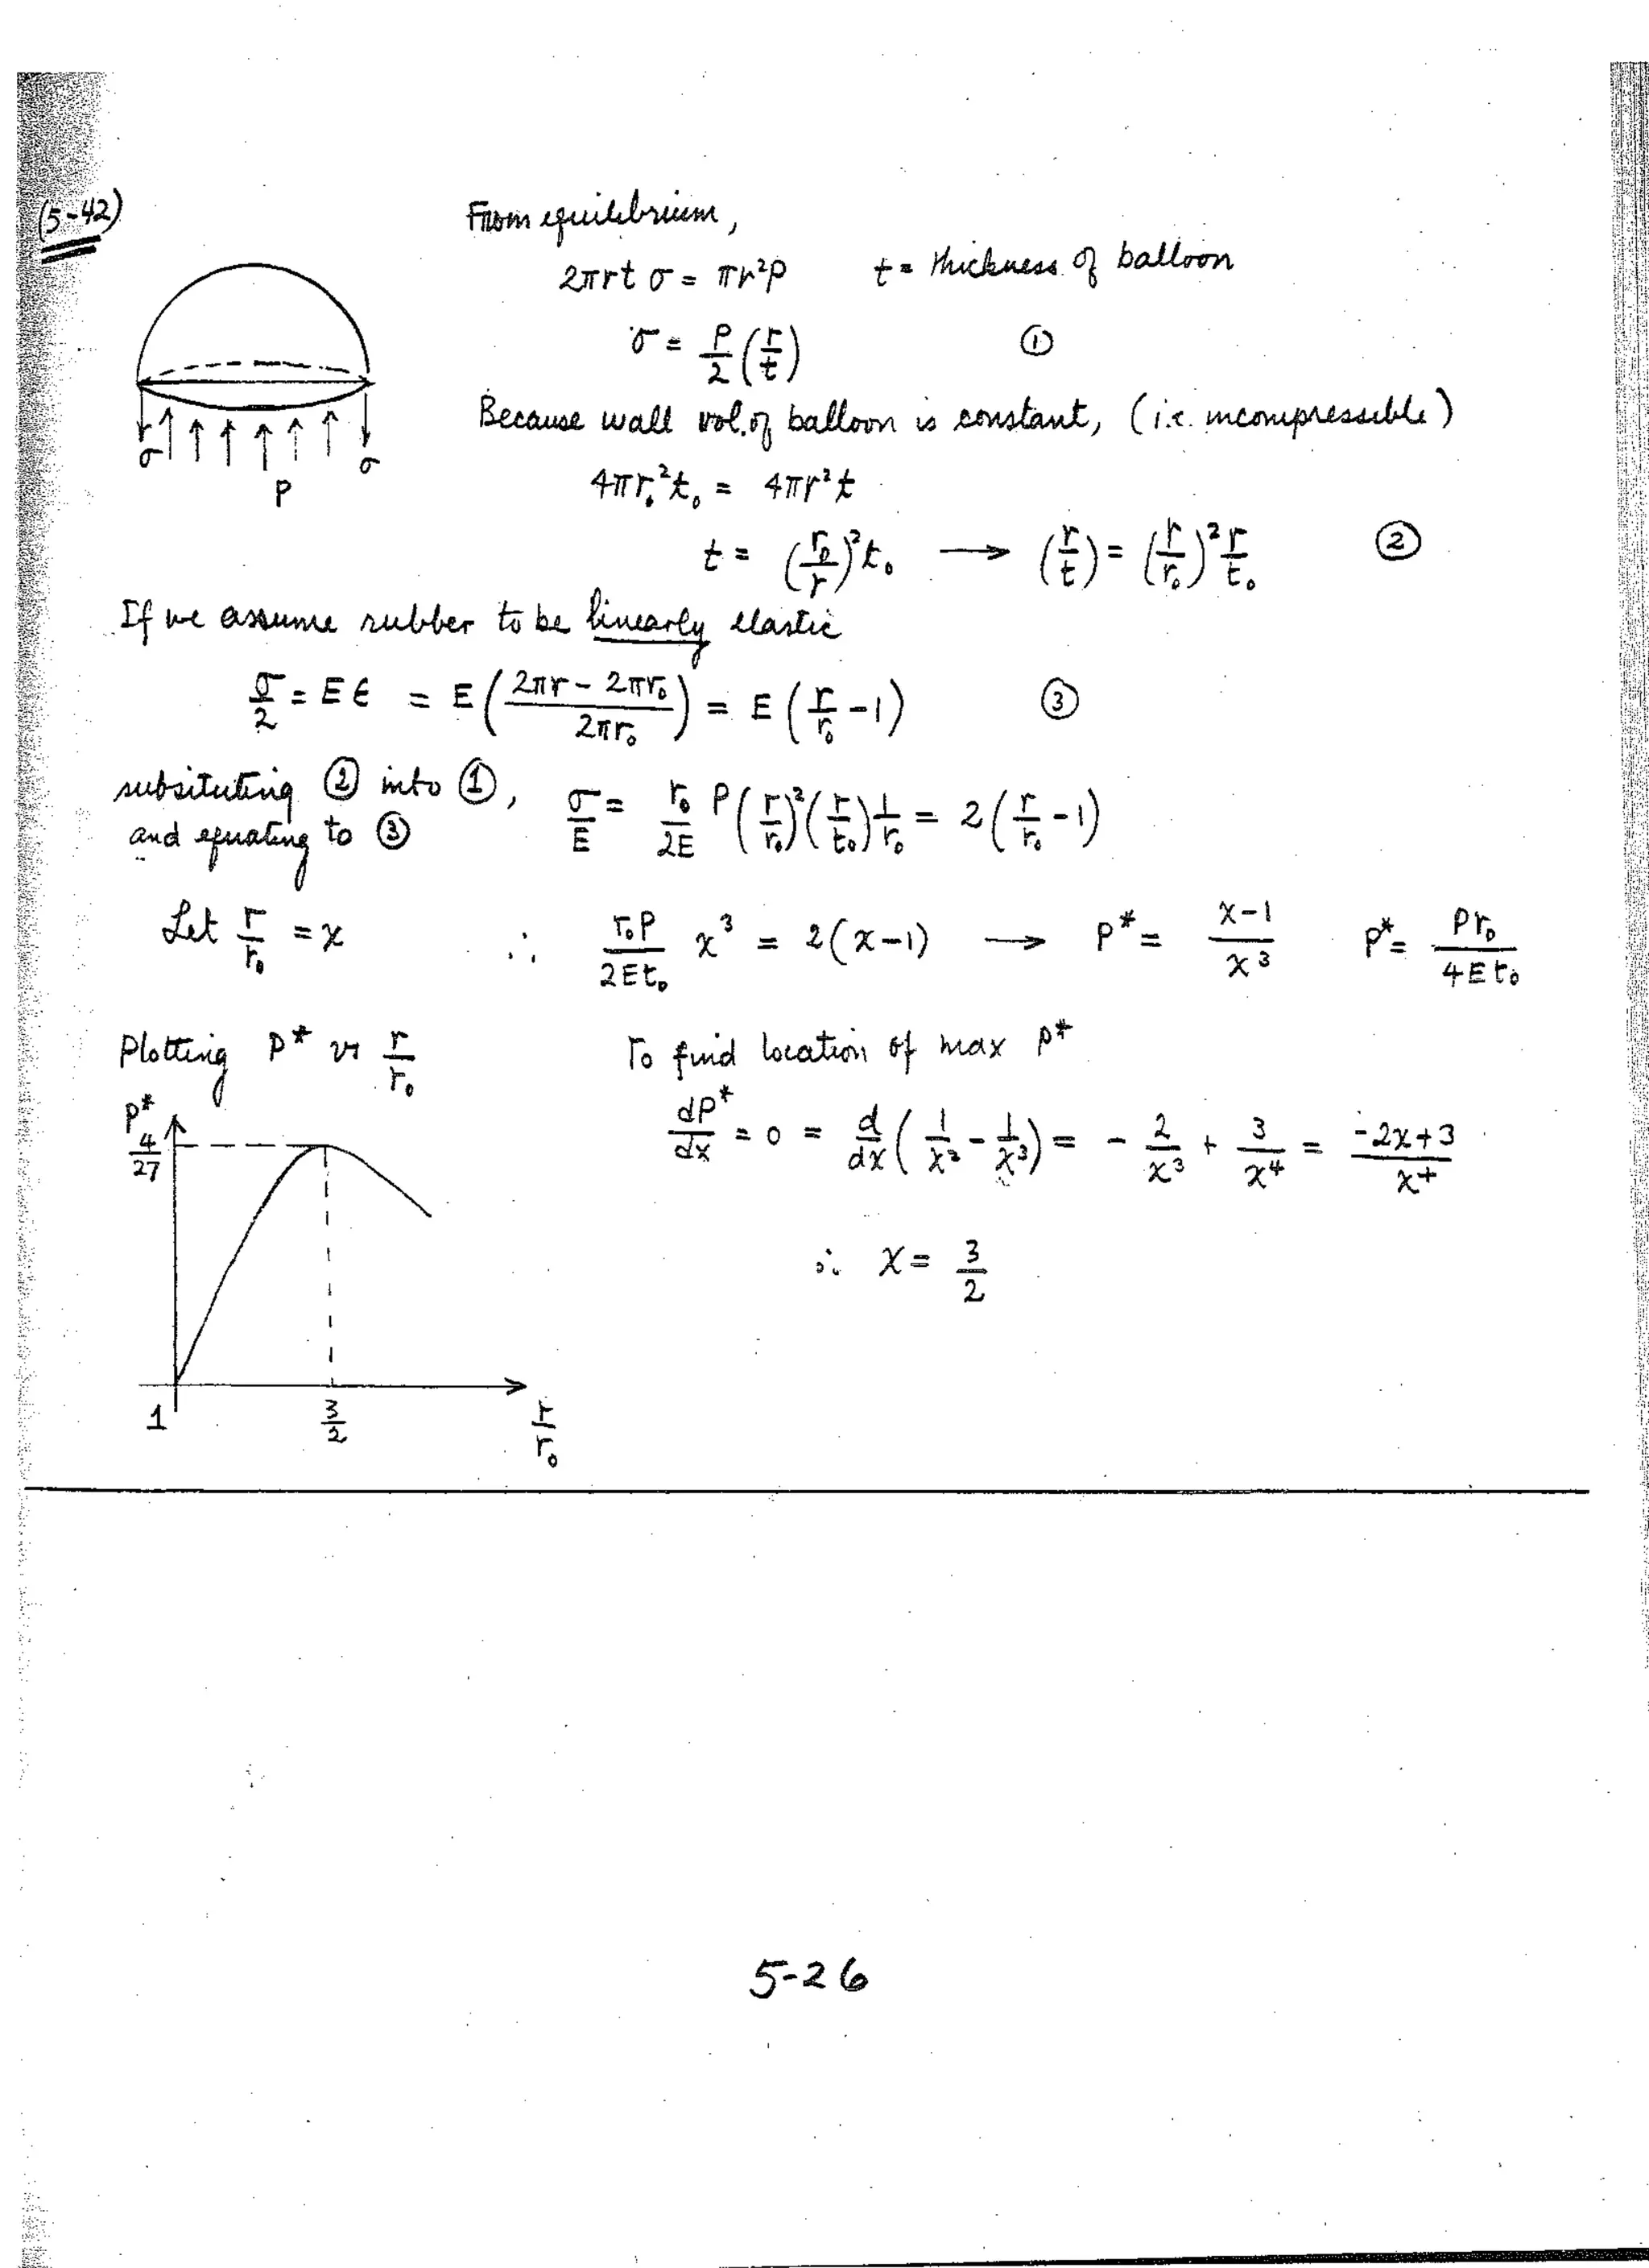 (5-42)
From equilibrium,
2πrt σ = πr²p t = thickness of balloon
σ = p/2 (r/t) ①
Because wall vol. of balloon is constant, (i.e. incompressible)
σ σ
p
4πr₀²t₀ = 4πr²t
t = (r₀/r)²t₀ → (r/t) = (r/r₀)² r/t₀ ②
If we assume rubber to be linearly elastic
σ/2 = Eϵ = E((2πr - 2πr₀)/2πr₀) = E(r/r₀ - 1) ③
subsituting ② into ①, σ/E = r₀/2E P(r/r₀)²(r/t₀)1/r₀ = 2(r/r₀ - 1)
and equating to ③
Let r/r₀ = x ∴ r₀P/2Et₀ x³ = 2(x-1) → P* = (x-1)/x³ P* = Pr₀/4Et₀
Plotting P* vs r/r₀ To find location of max P*
P*
4/27
dP*/dx = 0 = d/dx(1/x² - 1/x³) = - 2/x³ + 3/x⁴ = (-2x+3)/x⁴
∴ x = 3/2
1 3/2 r/r₀
5-26